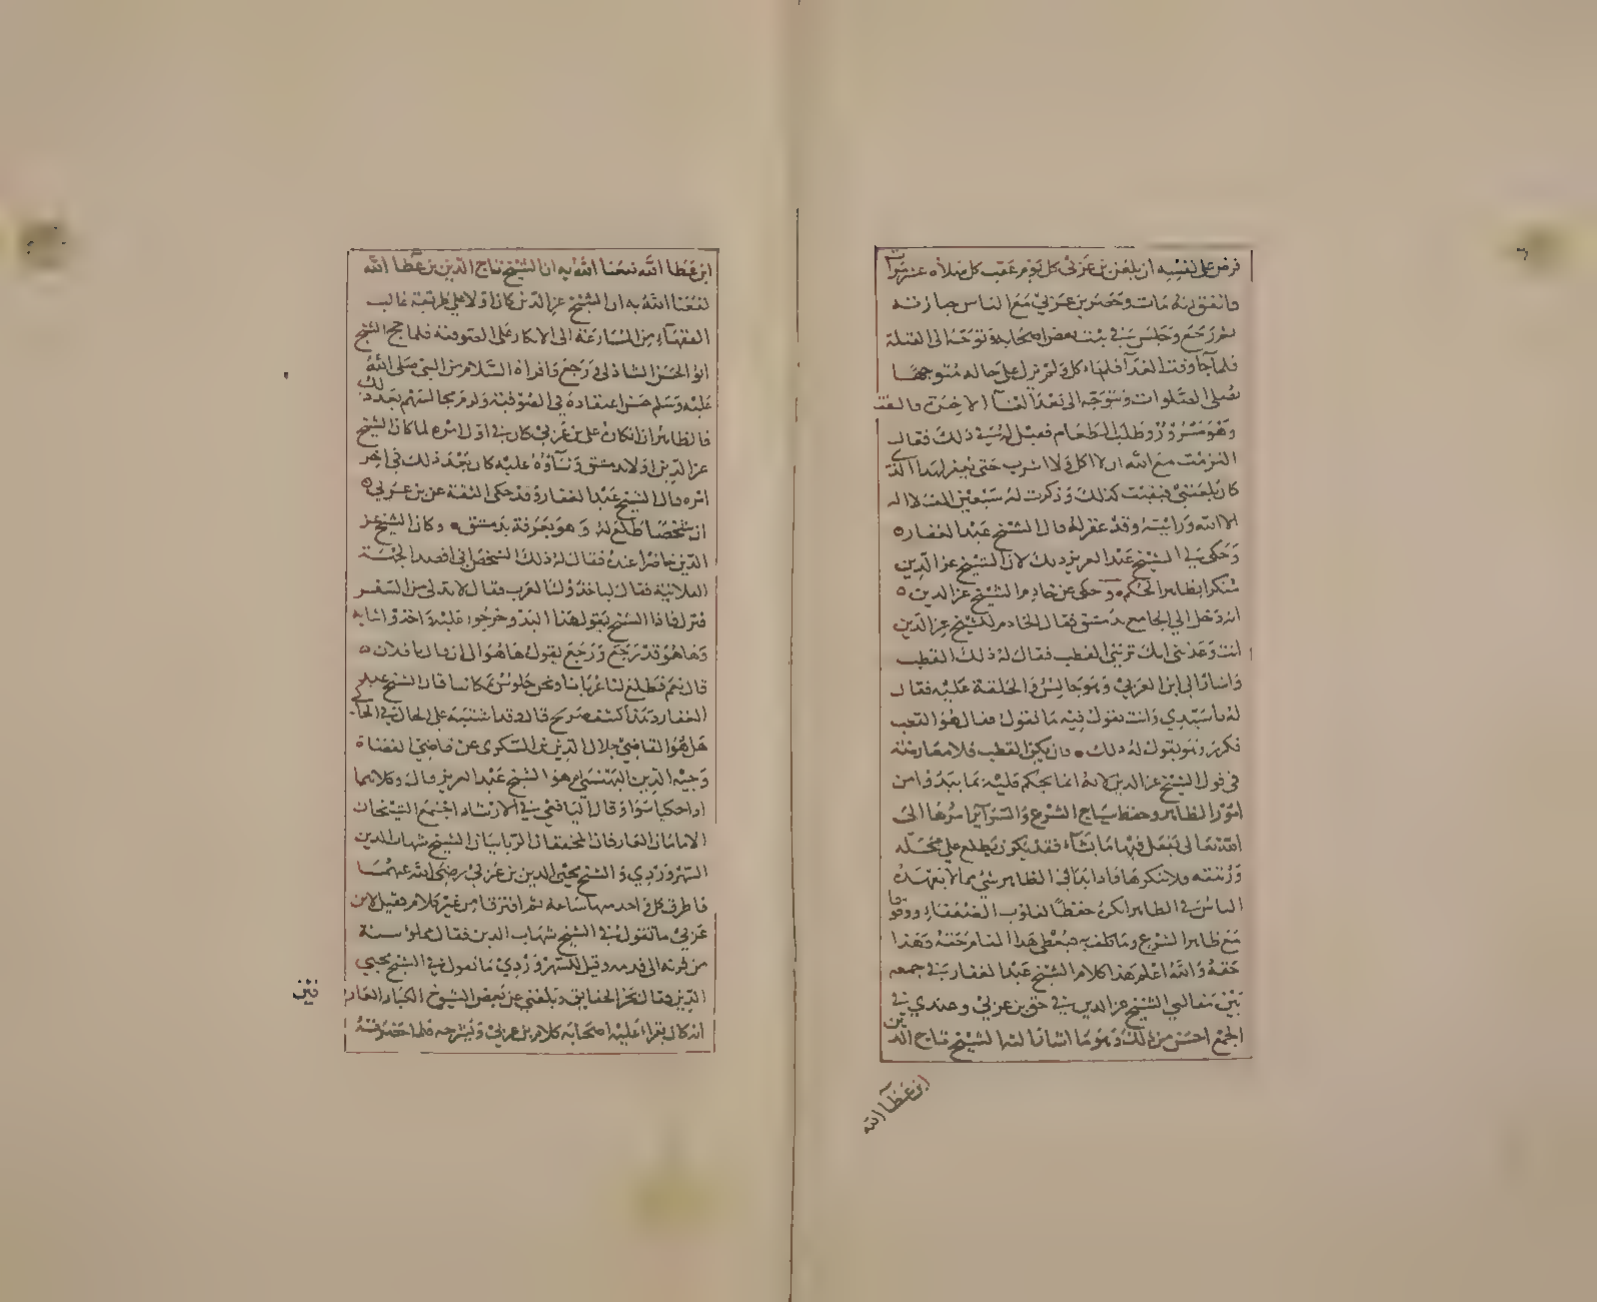 فرض على نفسه ان يلعن بن عربي كل يوم عقب كل صلاه عشر مرات
واتفق انه مات وحضر بن عربي مع الناس جنازته
ثم رجع وجلس في بيت بعض اصحابه وتوجه الى القبلة
فلما جا وقت الغدا فلم ياكل ولم يزل على حاله متوجها
يصلى الصلوات ويتوجه الى بعد العشا الاخرة فالتفت
وهو مسرور وطلب الطعام فقيل له في ذلك فقال
التزمت مع الله ان لا اكل ولا اشرب حتى يغفر لهذا الذي
كان يلعنني فبقيت كذلك وذكرت له سبعين الف لا اله
الا الله ورايته وقد غفر له قال الشيخ عبد الغفار
وحكى لي الشيخ عبد العزيز ذلك لان الشيخ عز الدين
منكرا بظاهر الحكم وحكى عن خادم الشيخ عز الدين
انه دخل الي الجامع بدمشق فقال الخادم للشيخ عز الدين
انت وعدتني انك تريني القطب فقال له ذلك القطب
واشار الى ابن العربي وهو جالس والحلقة عليه فقال
له يا سيدي وانت تقول فيه ما تقول فقال هو القطب
فكرر وهو يقول له ذلك فان يكن القطب فلا معارضة
في قول الشيخ عز الدين لانه انما يحكم عليه بما يبدو من
امور الظاهر وحفظ سياج الشرع والسراير امرها الى
الله تعالى يفعل فيها ما يشاء فقد يكون يطلع على محله
ورتبته فلا ينكرها واذا بدا في الظاهر شي مما لا يعهده
الناس في الظاهر انكره حفظا لقلوب الضعفاء ووقوفا
مع ظاهر الشرع وما كلف به فيعطى هذا المقام حقه وهذا
حقه والله اعلم هذا كلام الشيخ عبد الغفار في جمعه
بين مقالتي الشيخ عز الدين في حق بن عربي وعندي في
الجمع احسن من ذلك وهو ما اشار اليه الشيخ تاج الدين
ابن عطا الله
ابن عطا الله نفعنا الله به ان الشيخ تاج الدين بن عطا الله
نفعنا الله به ان الشيخ عز الدين كان اولا على طريقة غالب
الفقهاء من المسارعة الى الانكار على الصوفية فلما حج الشيخ
ابو الحسن الشاذلي ورجع واقراه السلام من النبي صلى الله
عليه وسلم حسن اعتقاده في الصوفية ولزم مجالستهم بعد ذلك
فالظاهر ان انكاره على بن عربي كان في اول امره لما كان الشيخ
عز الدين اولا بدمشق وثناؤه عليه كان بعد ذلك في اخر
امره قال الشيخ عبد الغفار وقد حكى الثقة عن بن عربي
ان شخصا طلع له وهو بغرفة بدمشق وكان الشيخ عز
الدين حاضرا عنده فقال له ذلك الشخص اني اقصد الجهة
الفلانية فقال له ياخذوك العرب فقال لا بد لي من السفر
فنزل فاذا الشيخ يقول هذا البدو خرجوا عليه واخذوا ثيابه
وها هو قد رجع ورجع يقول ها هو الى ان قال يا فلان
قال نعم فطلع لنا عريانا ونحن جلوس بمكاننا قال الشيخ عبد
الغفار وهذا كشف صريح قال وقد اشتبه على الحال في الحاكي
هل هو القاضي جلال الدين بن السكرى عن قاضي القضاة
وجيه الدين البهنسي ام هو الشيخ عبد العزيز قال وكلاهما
اذا حكيا سواء وقال اليافعي في الارشاد اجتمع الشيخان
الامامان العارفان المحققان الربانيان الشيخ شهاب الدين
السهروردي والشيخ محيي الدين بن عربي رضي الله عنهما
فاطرق كل واحد منهما ساعة ثم افترقا من غير كلام فقيل لابن
عربي ما تقول في الشيخ شهاب الدين فقال مملو سنة
من قرنه الى قدمه وقيل للسهروردي ما تقول في الشيخ محيي
الدين فقال بحر الحقايق وبلغني عن بعض الشيوخ الكبار العارفين
انه كان يقراء عليه اصحابه كلام بن عربي ويشرحه فلما حضرته